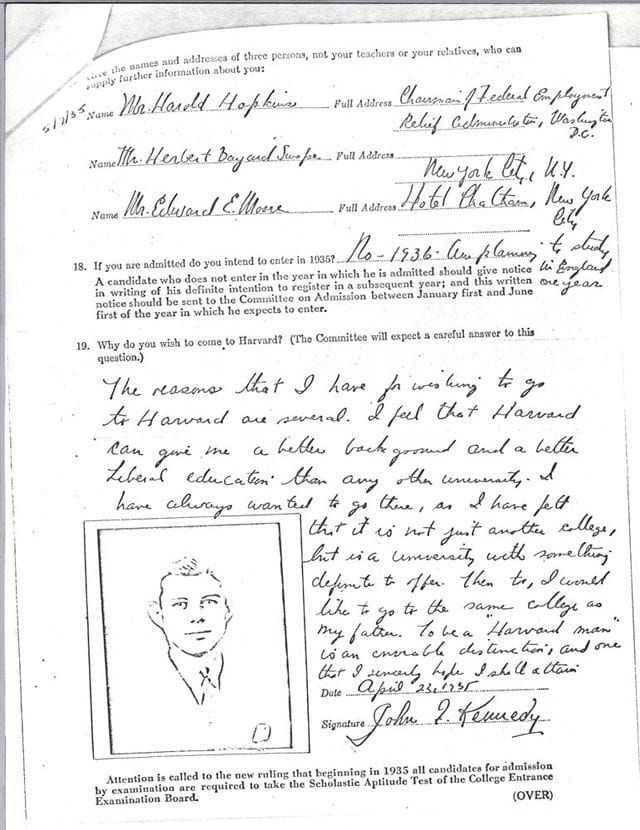 Give the names and addresses of three persons, not your teachers or your relatives, who can
supply further information about you:
5/2/35 Name Mr. Harold Hopkins Full Address Chairman of Federal Employment
Relief Administration, Washington
D.C.
Name Mr. Herbert Bayard Swope Full Address
New York City, N.Y.
Name Mr. Edward E. Moore Full Address Hotel Chatham, New York
City
18. If you are admitted do you intend to enter in 1935? No - 1936 - Am planning to study
in England
one year
A candidate who does not enter in the year in which he is admitted should give notice
in writing of his definite intention to register in a subsequent year; and this written
notice should be sent to the Committee on Admission between January first and June
first of the year in which he expects to enter.
19. Why do you wish to come to Harvard? (The Committee will expect a careful answer to this
question.)
The reasons that I have for wishing to go
to Harvard are several. I feel that Harvard
can give me a better background and a better
liberal education than any other university. I
have always wanted to go there, as I have felt
that it is not just another college,
but is a university with something
definite to offer. Then too, I would
like to go to the same college as
my father. To be a "Harvard man"
is an enviable distinction, and one
that I sincerely hope I shall attain
Date April 23, 1935
Signature John F. Kennedy
Attention is called to the new ruling that beginning in 1935 all candidates for admission
by examination are required to take the Scholastic Aptitude Test of the College Entrance
Examination Board.
(OVER)